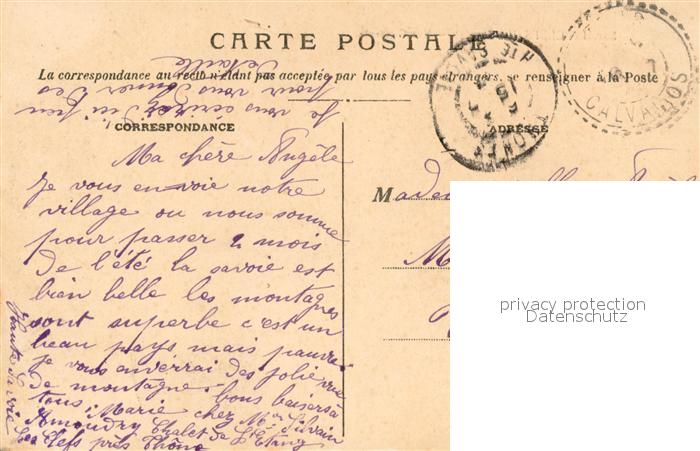 CARTE POSTALE
La correspondance au recto n'étant pas acceptée par tous les pays étrangers, se renseigner à la Poste
CORRESPONDANCE
ADRESSE
Ma chère Angèle
Je vous envoie notre
village ou nous somme
pour passer 2 mois
de l'été la savoie est
bien belle les montagnes
sont superbe c'est un
beau pays mais pauvre
je vous enverrai des jolie vue
de montagne. bons baisers à
tous Marie chez Mr Silvain
Amoudry Chalet de l'Etang
Les Clefs près Thône
Haute Savoie
Je vous écrirai un peu
pour vous donner des
détaille
M
CALVADOS
HTE SAVOIE
THONES
privacy protection
Datenschutz